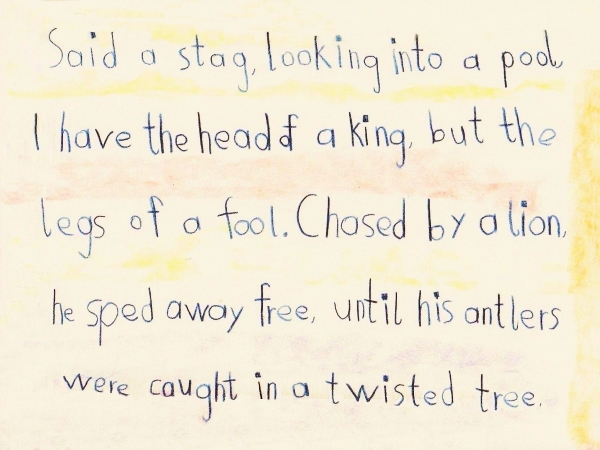 Said a stag, looking into a pool,
I have the head of a king, but the
legs of a fool. Chased by a lion,
he sped away free, until his antlers
were caught in a twisted tree.